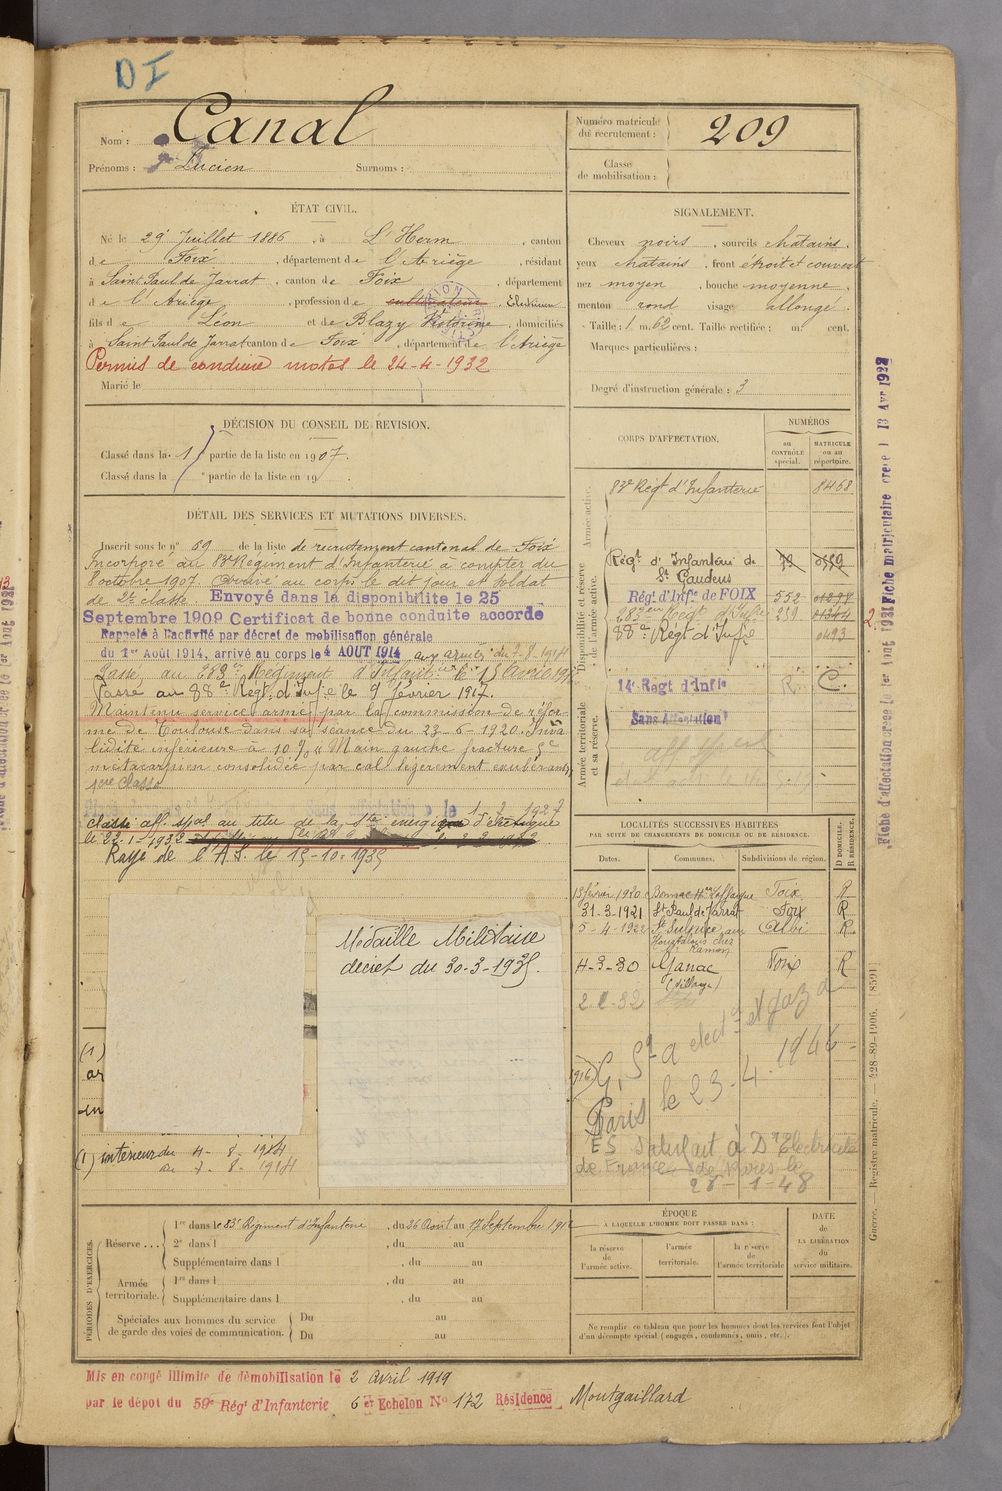 DI
Nom : Canal
Prénoms : Lucien Surnoms :
Numéro matricule du recrutement : 209
Classe de mobilisation :
ÉTAT CIVIL.
Né le 29 Juillet 1886, à L'Herm, canton
de Foix, département de l'Ariège, résidant
à Saint Paul de Jarrat, canton de Foix, département
de l'Ariège, profession de cultivateur Electricien
fils de Léon et de Blazy Victorine, domiciliés
à Saint Paul de Jarrat canton de Foix, département de l'Ariège
Permis de conduire motos le 24-4-1932
Marié le
SIGNALEMENT.
Cheveux noirs, sourcils chatains.
yeux chatains, front étroit et couvert
nez moyen, bouche moyenne,
menton rond visage allongé.
Taille : 1 m. 62 cent. Taille rectifiée : m. cent.
Marques particulières :
Degré d'instruction générale : 3
DÉCISION DU CONSEIL DE REVISION.
Classé dans la 1 partie de la liste en 1907.
Classé dans la partie de la liste en 19
DÉTAIL DES SERVICES ET MUTATIONS DIVERSES.
Inscrit sous le n° 69 de la liste de recrutement cantonal de Foix
Incorporé au 83e Régiment d'Infanterie à compter du
8 octobre 1907. Arrivé au corps le dit jour et soldat
de 2e classe. Envoyé dans la disponibilité le 25
Septembre 1909 Certificat de bonne conduite accordé
Rappelé à l'activité par décret de mobilisation générale
du 1er Août 1914, arrivé au corps le 4 AOUT 1914 aux armées du 7-8-1914
Passé au 283e Régiment d'Infanterie le 15 Avril 191
Passé au 88e Regt. d'Infie le 9 février 1917.
Maintenu service armé par la commission de réfor-
me de Toulouse dans sa séance du 23-6-1920. Inva
lidité inférieure à 10 % "Main gauche fracture 5e
métacarpien consolidée par cal légèrement exubérant"
1ère Classe
Sans affectation" le 1-2-1927
Classé aff. spal au titre de la Sté énergie électrique
le 22-1-1932
Rayé de l'A.S. le 15-10-1935
Médaille Militaire
décret du 30-3-1935.
(1)
(1) intérieur du 4-8-1914
7-8-1914
CORPS D'AFFECTATION.
NUMÉROS
au CONTRÔLE spécial.
MATRICULE ou au répertoire.
Armée active.
83e Régt d'Infanterie 8468
Disponibilité et réserve de l'armée active.
Régt d'Infanterie de St Gaudens
Régt d'Infie de FOIX 552
283eme Regt d'Infie 239 01344
88e Régt d'Infie 0493
Armée territoriale et sa réserve.
14e Regt d'Infie R. C.
Sans Affectation
LOCALITÉS SUCCESSIVES HABITÉES
PAR SUITE DE CHANGEMENTS DE DOMICILE OU DE RÉSIDENCE.
D DOMICILE. R RÉSIDENCE.
Dates. Communes. Subdivisions de région.
13 février 1920 Bonnac Foix R
31-3-1921 St Paul de Jarrat Foix R
5-4-1922 St Sulpice Albi R
chez Ramon
4-3-30 Ganac (village) Foix R
2.2.32
Paris le 23-4-1946
ES Satisfait à Don Electricité
de France de Paris le
28-1-48
PÉRIODES D'EXERCICES.
Réserve ... 1re dans le 83e Régiment d'Infanterie, du 26 Août au 17 Septembre 1912
2e dans l , du au
Supplémentaire dans l , du au
Armée territoriale. 1re dans l , du au
Supplémentaire dans l , du au
Spéciales aux hommes du service de garde des voies de communication. Du au
Du au
ÉPOQUE
À LAQUELLE L'HOMME DOIT PASSER DANS :
la réserve de l'armée active.
l'armée territoriale.
la réserve de l'armée territoriale
DATE de LA LIBÉRATION du service militaire.
Ne remplir ce tableau que pour les hommes dont les services font l'objet
d'un décompte spécial (engagés, condamnés, omis, etc.).
Mis en congé illimité de démobilisation le 2 Avril 1919
par le dépôt du 59e Régt d'Infanterie 6e Echelon No 172 Résidence Montgaillard
Fiche matriculaire créée l 13 Avr 1922
Fiche d'affectation créée le 1er Aout 1921
Guerre. — Registre matricule. — 428-89-1906. [8591]